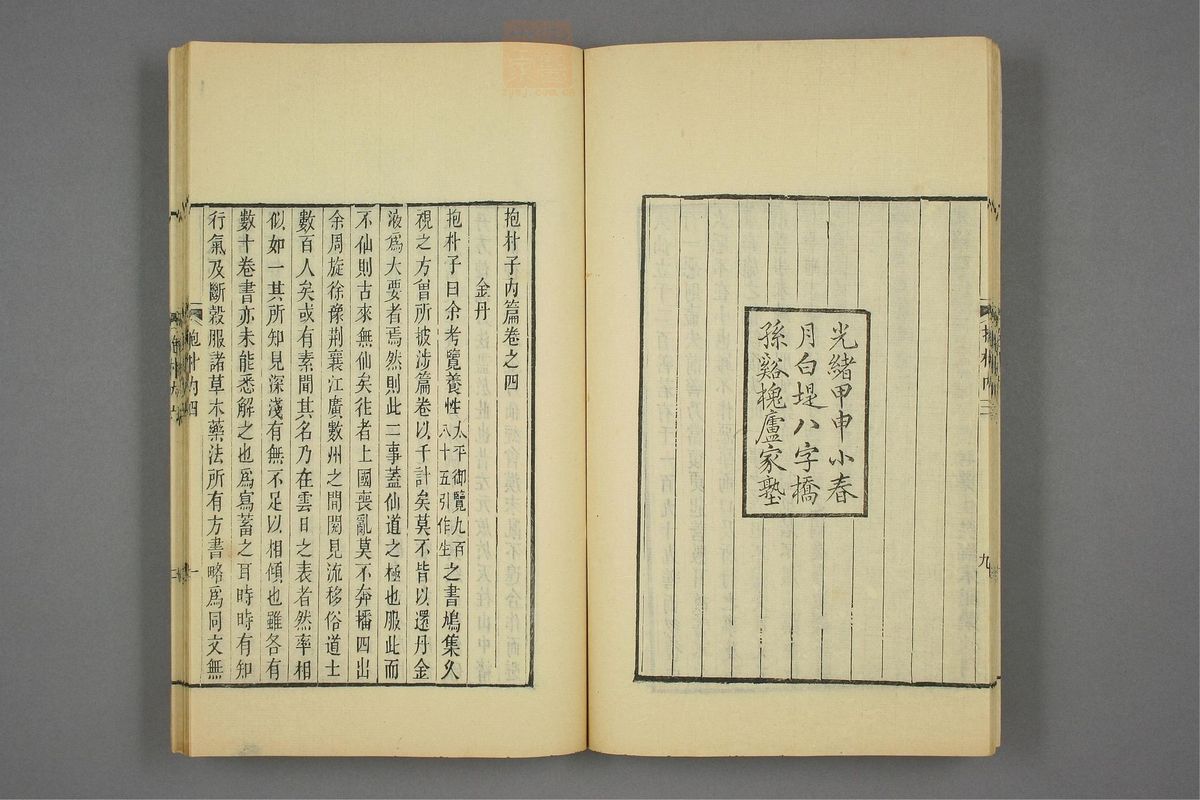 光緒甲申小春
月白堤八字橋
孫谿槐廬家塾
九
抱朴子内篇卷之四
金丹
抱朴子曰余考覽養性太平御覽九百八十五引作生之書鳩集久
視之方曾所披涉篇卷以千計矣莫不皆以還丹金
液爲大要者焉然則此二事蓋仙道之極也服此而
不仙則古來無仙矣往者上國喪亂莫不奔播四出
余周旋徐豫荆襄江廣數州之間閱見流移俗道士
數百人矣或有素聞其名乃在雲日之表者然率相
似如一其所知見深淺有無不足以相傾也雖各有
數十卷書亦未能悉解之也爲寫蓄之耳時時有知
行氣及斷穀服諸草木藥法所有方書略爲同文無
抱朴内四
一